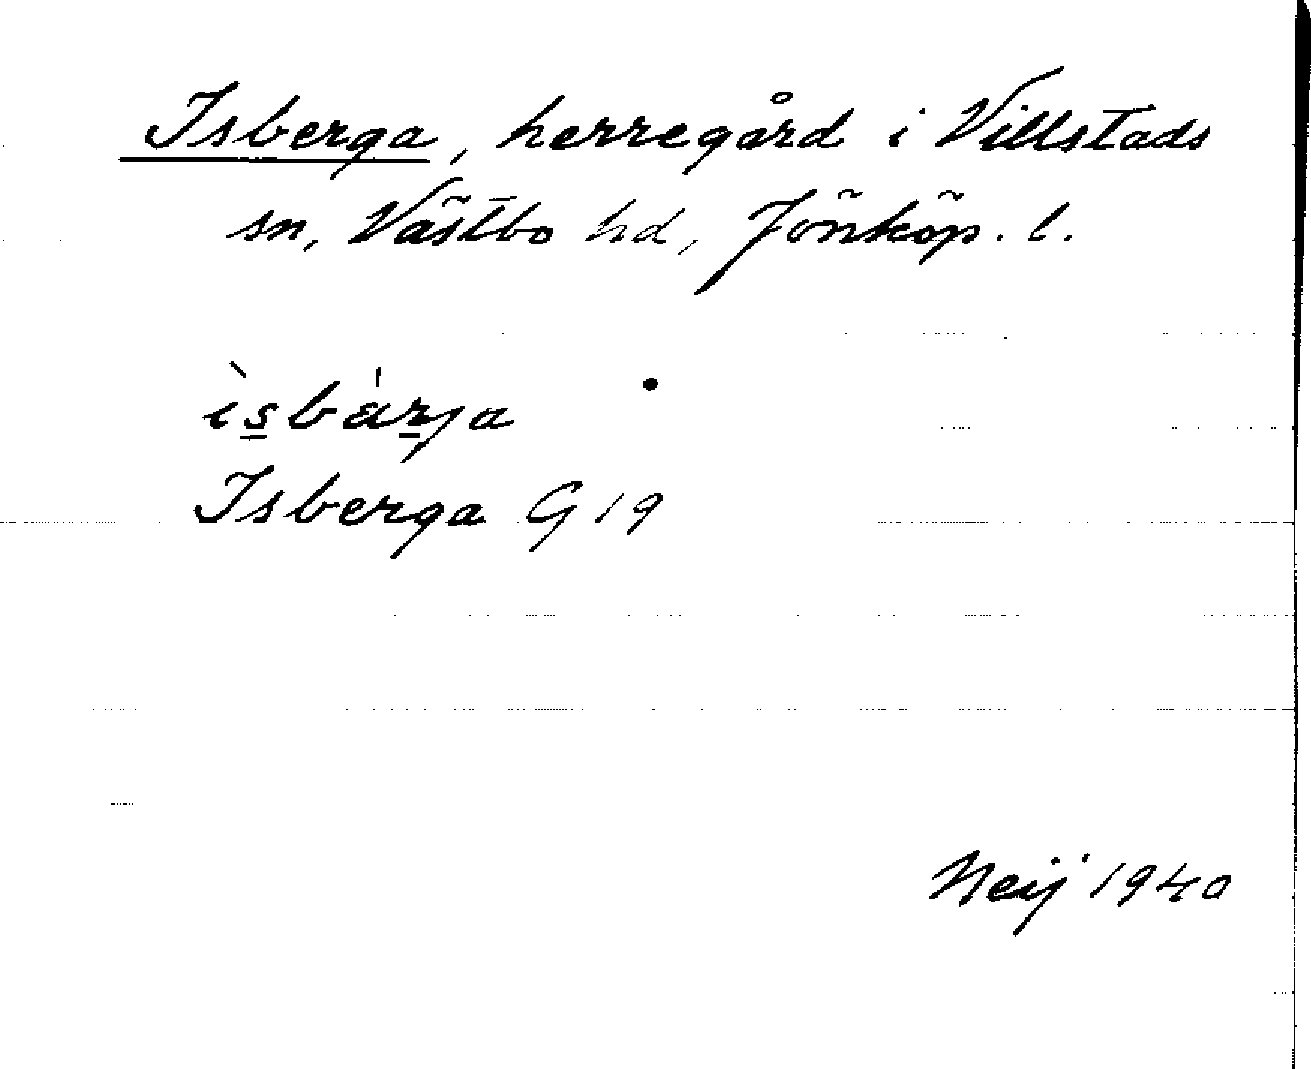 Isberga, herregård i Villstads
sn, Västbo hd, Jönköp. l.
ìsbárja
Isberga G 19
Neij 1940